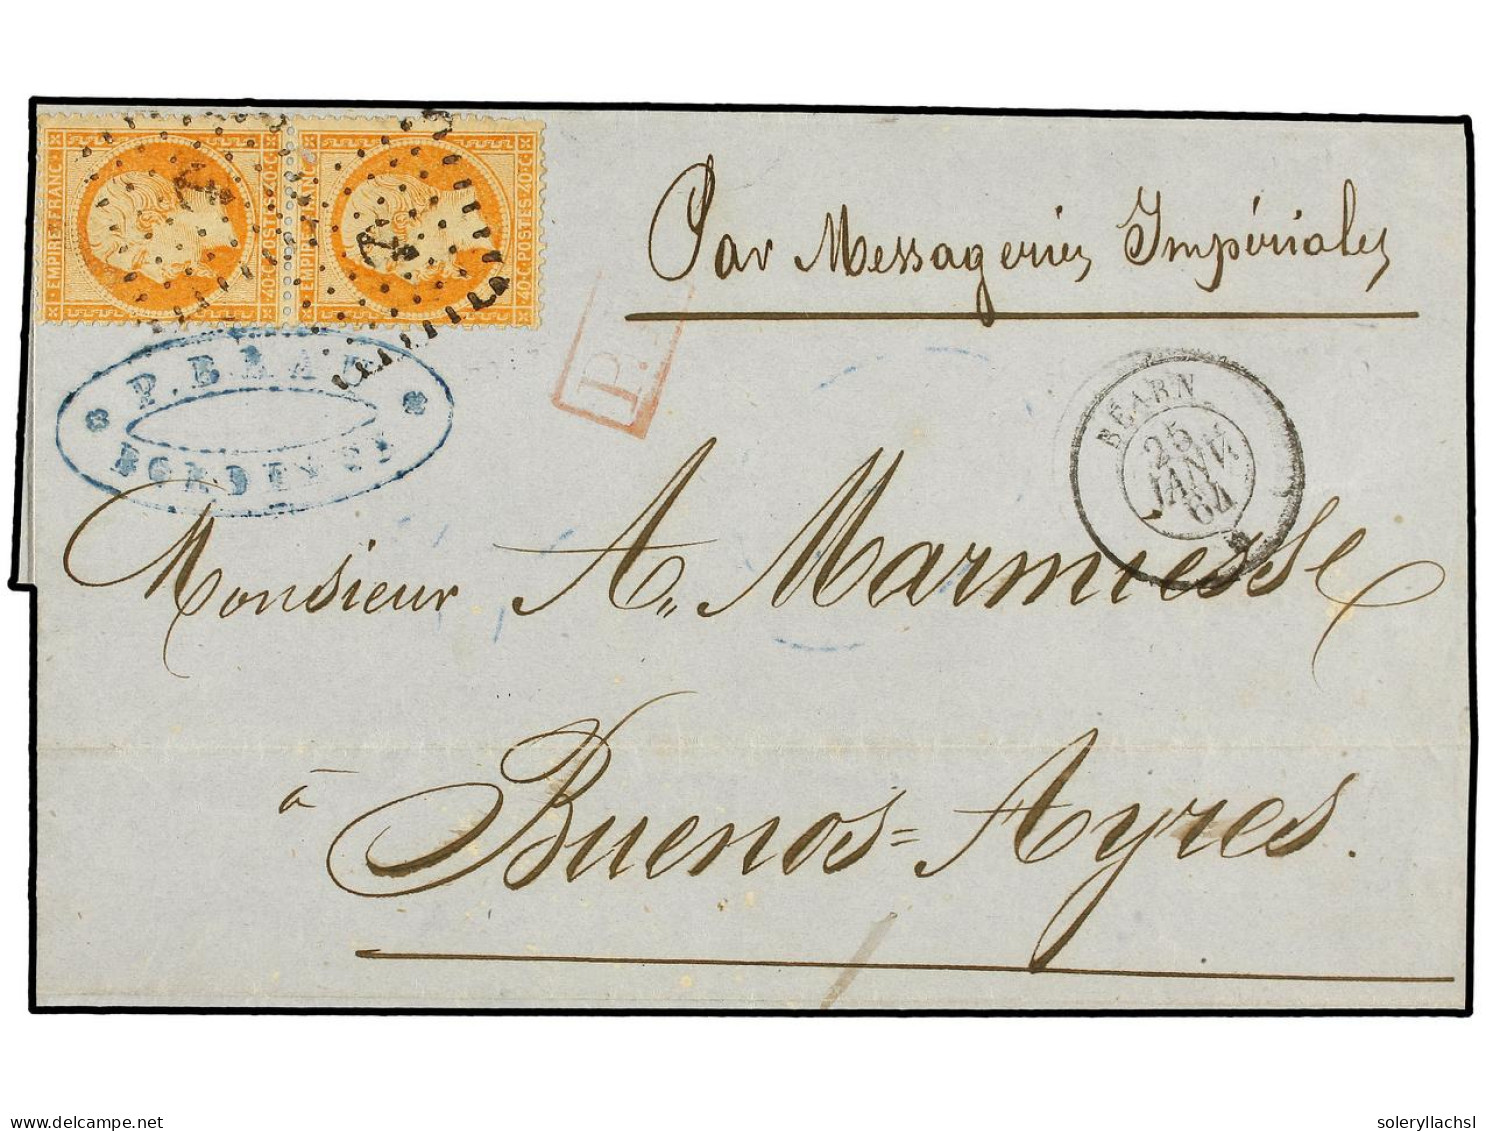 EMPIRE FRANC.
40·C·POSTES·40·C
EMPIRE FRANC.
40·C·POSTES·40·C
Par Messageries Impériales
P.
BORDEAUX
BÉARN
25
JANV
64
Monsieur A. Marmiesse
à Buenos=Ayres.
delcampe.net
soleryllachsl